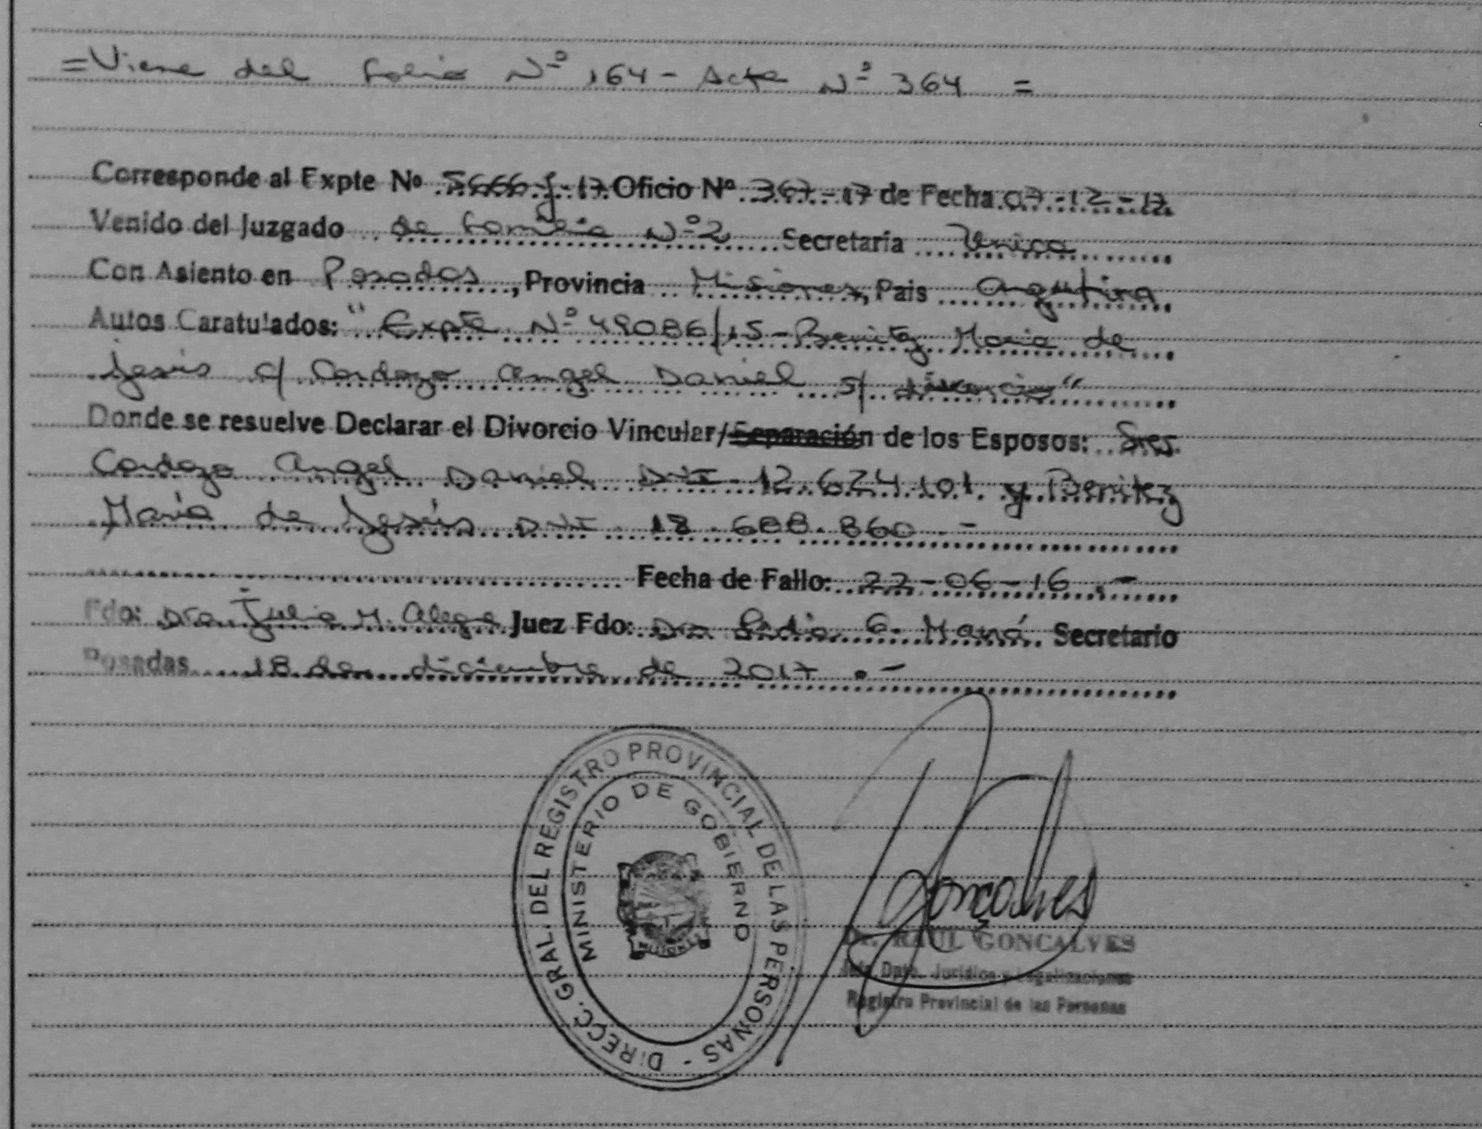 =Viene del folio Nº 164 - Acta Nº 364 =
Corresponde al Expte Nº 5666-J-17 Oficio Nº 367-17 de Fecha 07-12-17
Venido del Juzgado de familia Nº 2 Secretaría Unica
Con Asiento en Posadas, Provincia Misiones, Pais Argentina
Autos Caratulados: "Expte Nº 49086/15 - Benitez Maria de
Jesús c/ Cardozo Angel Daniel s/ divorcio"
Donde se resuelve Declarar el Divorcio Vincular/Separación de los Esposos: Sres
Cardozo Angel Daniel DNI 12.624.101 y Benitez
María de Jesús DNI 18.688.860.-
Fecha de Fallo: 22-06-16.-
Fdo: Dra. Julia M. Alegre Juez Fdo: Dra G. Maná Secretario
Posadas 18 de diciembre de 2017.-
DIRECC. GRAL. DEL REGISTRO PROVINCIAL DE LAS PERSONAS -
MINISTERIO DE GOBIERNO
MISIONES
Gonçalves
Dr. RAUL GONCALVES
Jefe Dpto. Jurídico y Legalizaciones
Registro Provincial de las Personas